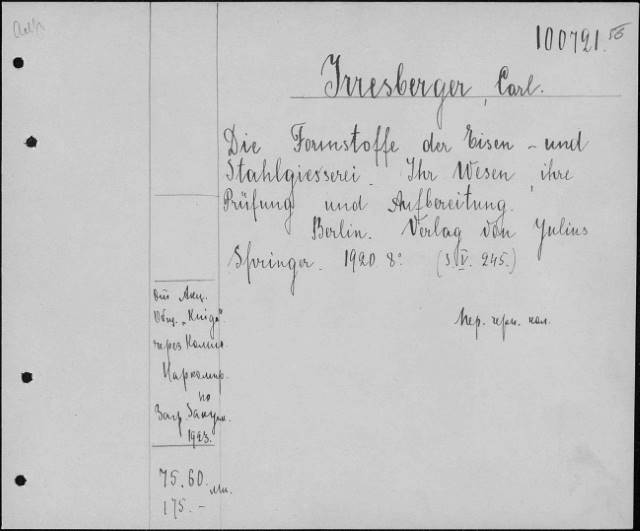 100721.56
Irresberger, Carl.
Die Formstoffe der Eisen - und
Stahlgiesserei. Ihr Wesen, ihre
Prüfung und Aufbereitung.
Berlin. Verlag von Julius
Springer. 1920. 8°. (S. V. 245.)
Пер. черн. кол.
Акц.
Общ. „Книга".
через
по
1923.
75.60 мк.
175.-